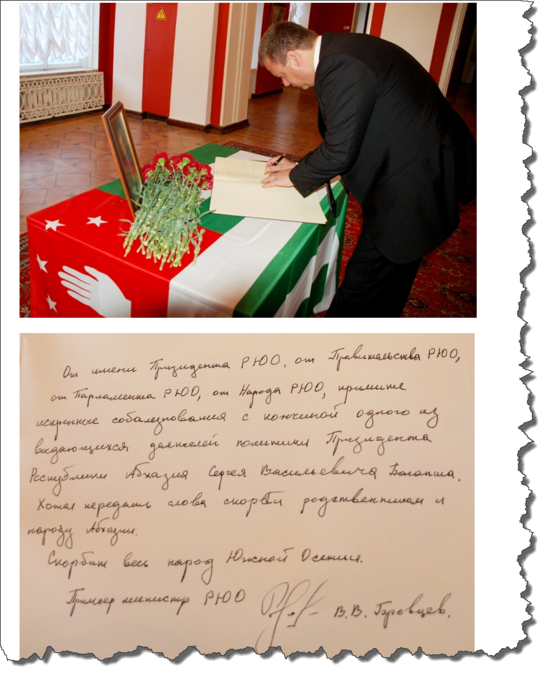 От имени Президента РЮО, от Правительства РЮО,
от Парламента РЮО, от Народа РЮО, примите
искренние соболезнования с кончиной одного из
выдающихся деятелей политики Президента
Республики Абхазия Сергея Васильевича Багапша.
Хотел передать слова скорби родственникам и
народу Абхазии.
Скорбит весь народ Южной Осетии.
Премьер министр РЮО
В.В.